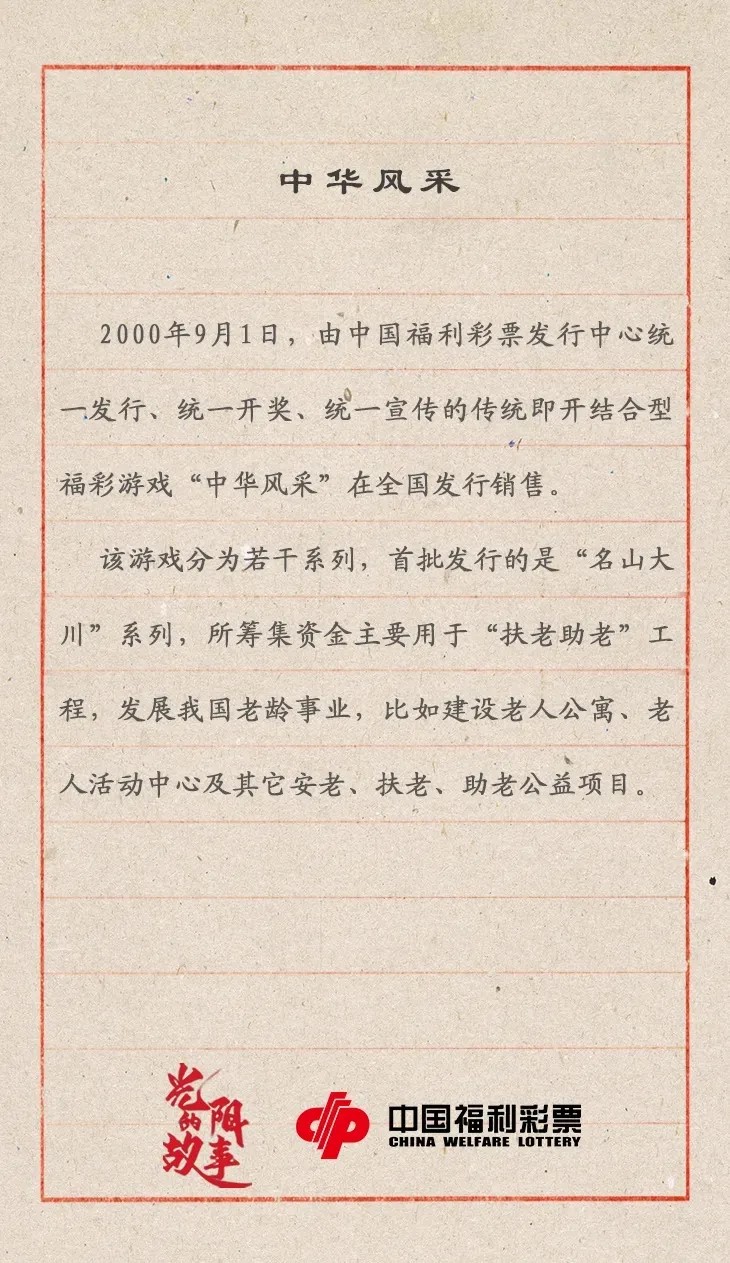 中华风采
2000年9月1日，由中国福利彩票发行中心统
一发行、统一开奖、统一宣传的传统即开结合型
福彩游戏“中华风采”在全国发行销售。
该游戏分为若干系列，首批发行的是“名山大
川”系列，所筹集资金主要用于“扶老助老”工
程，发展我国老龄事业，比如建设老人公寓、老
人活动中心及其它安老、扶老、助老公益项目。
光阴
的
故事
中国福利彩票
CHINA WELFARE LOTTERY